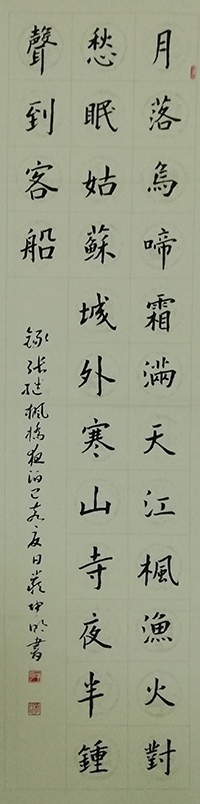 月落烏啼霜滿天江楓漁火對
愁眠姑蘇城外寒山寺夜半鍾
聲到客船
錄张继楓橋夜泊己亥夏日嚴坤明書